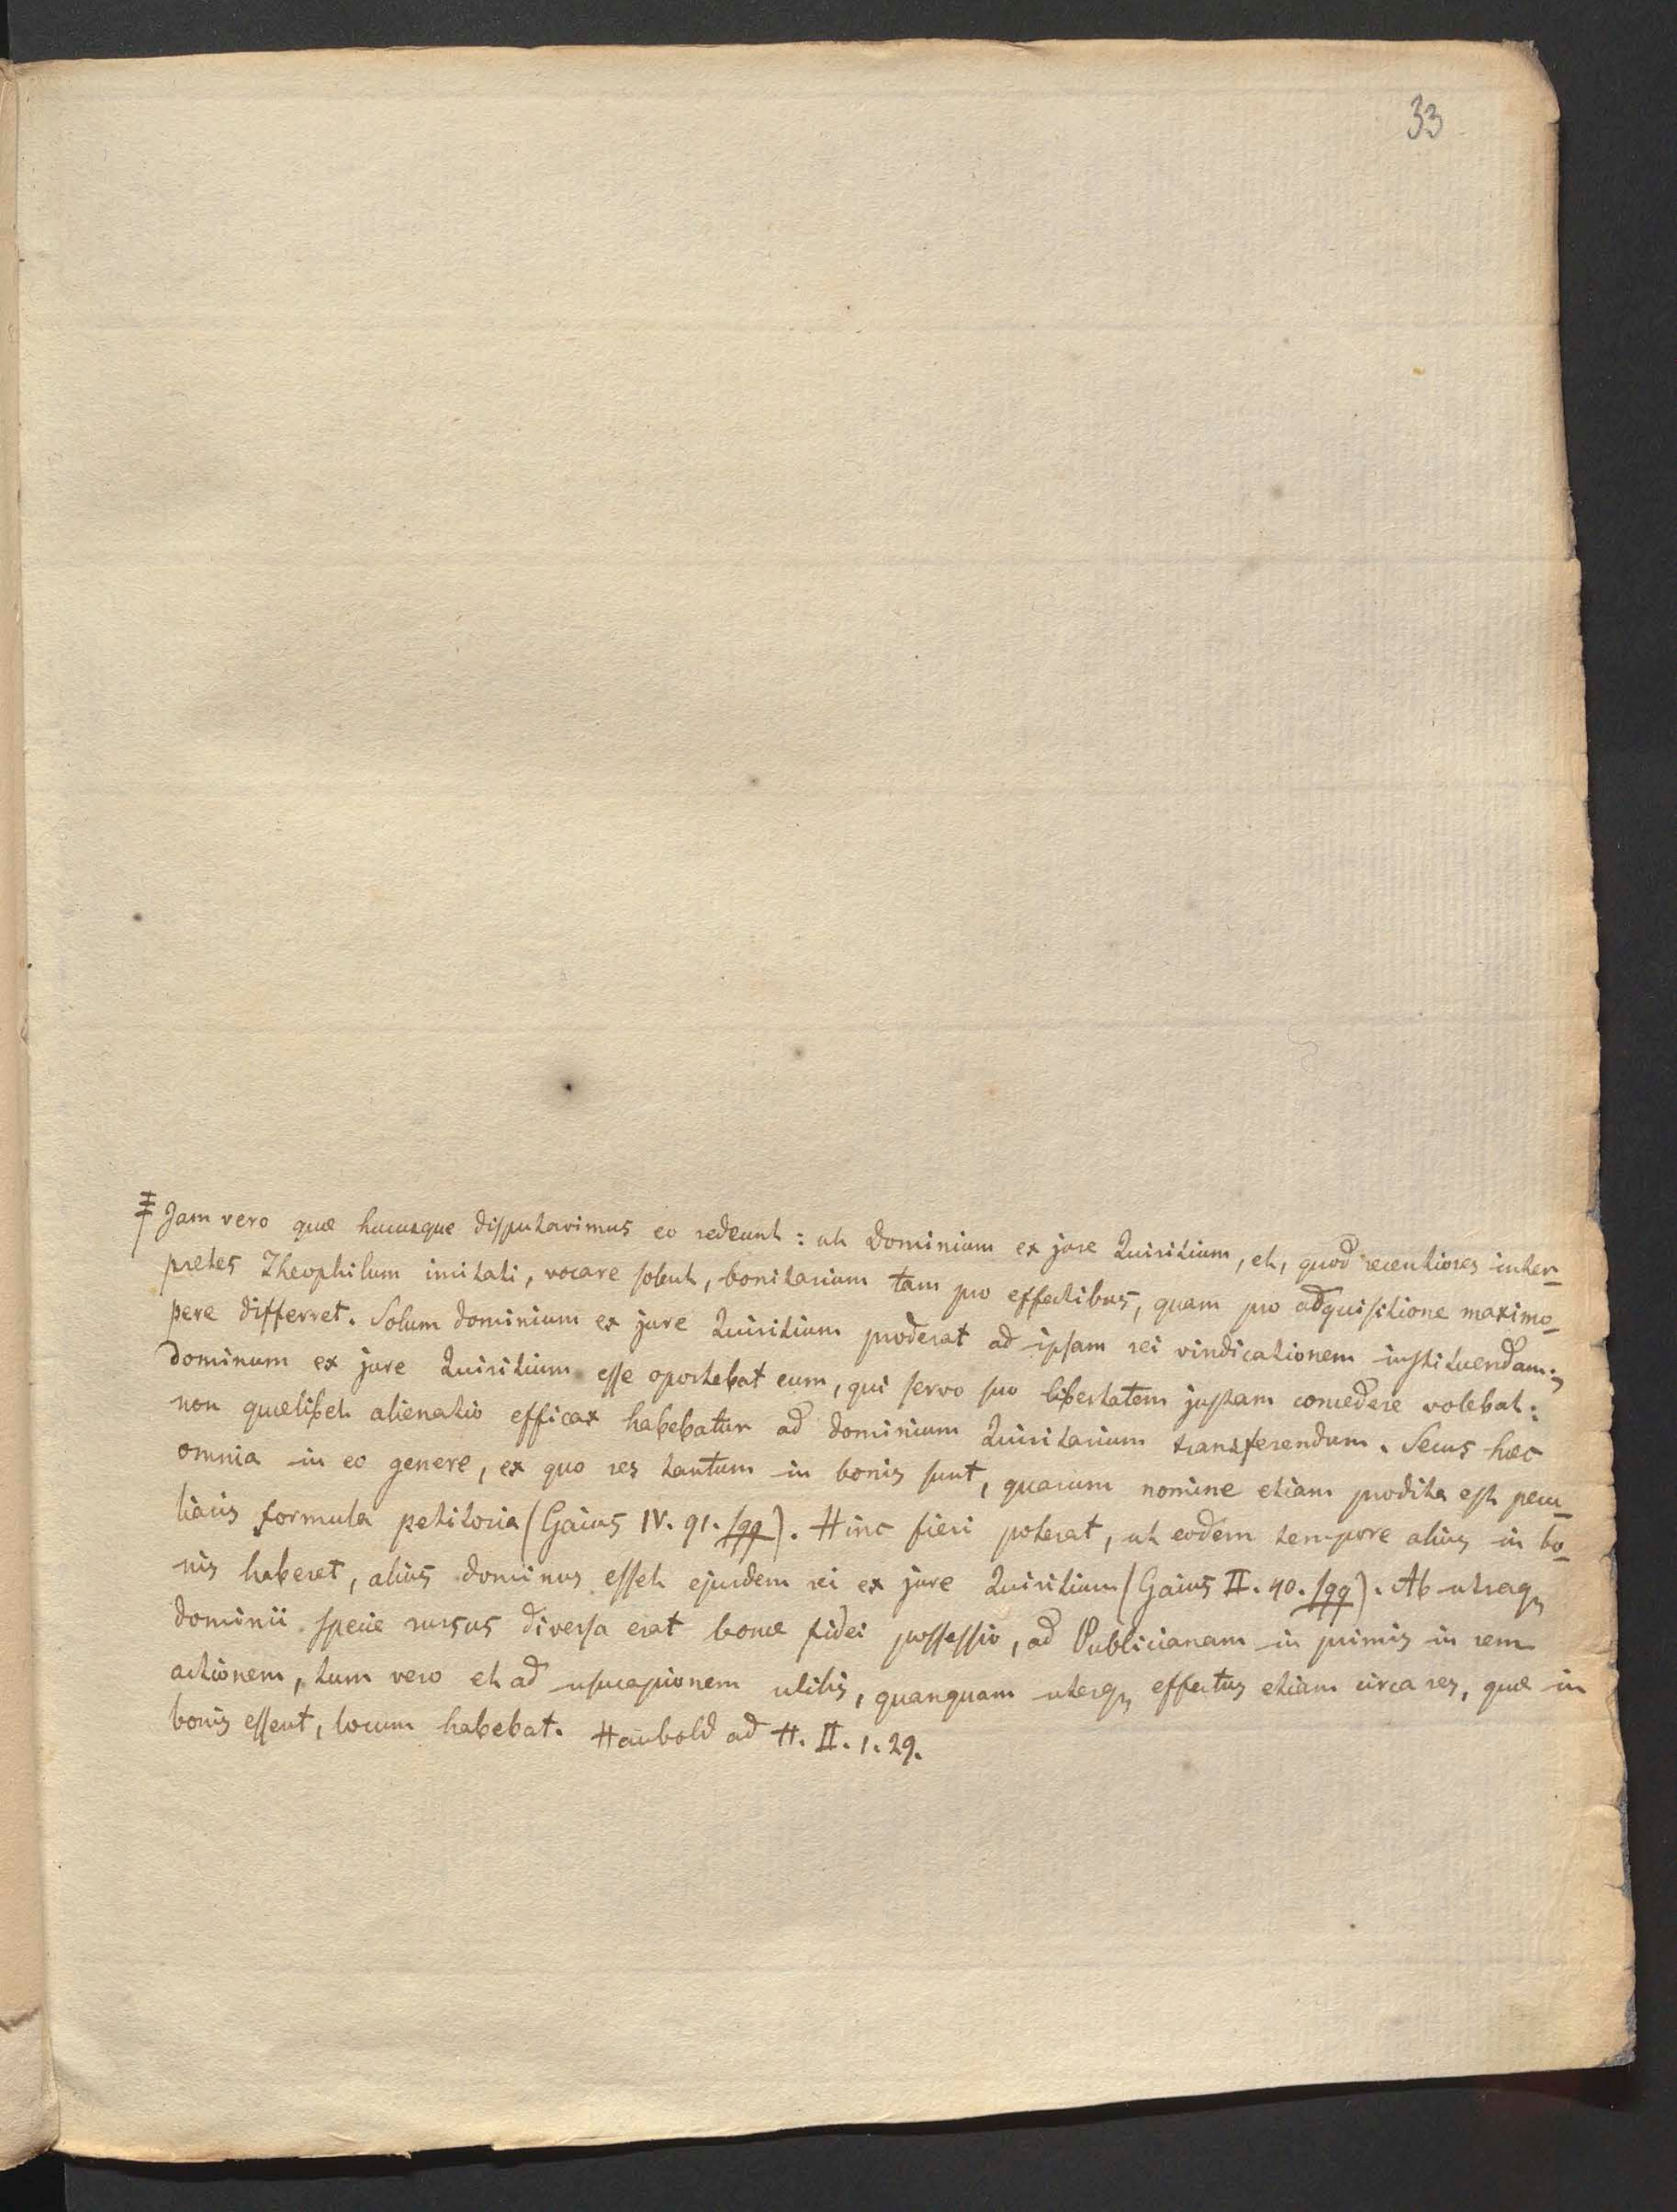 33
‡ Jam vero quæ hucusque disputavimus eo redeunt: ut dominium ex jure Quiritium, et, quod recentiores inter-
pretes Theophilum imitati, vocare solent, bonitarium tam pro effectibus, quam pro adquisitione maximo-
pere differret. Solum dominium ex jure Quiritium proderat ad ipsam rei vindicationem instituendam:
dominum ex jure Quiritium esse oportebat eum, qui servo suo libertatem justam concedere volebat:
non quælibet alienatio efficax habebatur ad dominium Quiritarium transferendum. Secus hæc
omnia in eo genere, ex quo res tantum in bonis sunt, quarum nomine etiam prodita est pecu-
liaris formula petitoria (Gaius IV. 91. sqq). Hinc fieri poterat, ut eodem tempore alius in bo-
nis haberet, alius dominus esset ejusdem rei ex jure Quiritium (Gaius II. 40. sqq). Ab utraq,
dominii specie rursus diversa erat bonæ fidei possessio, ad Publicianam in primis in rem
actionem, tum vero et ad usucapionem utilis, quanquam uterq, effectus etiam circa res, quæ in
bonis essent, locum habebat. Haubold ad H. II. 1. 29.